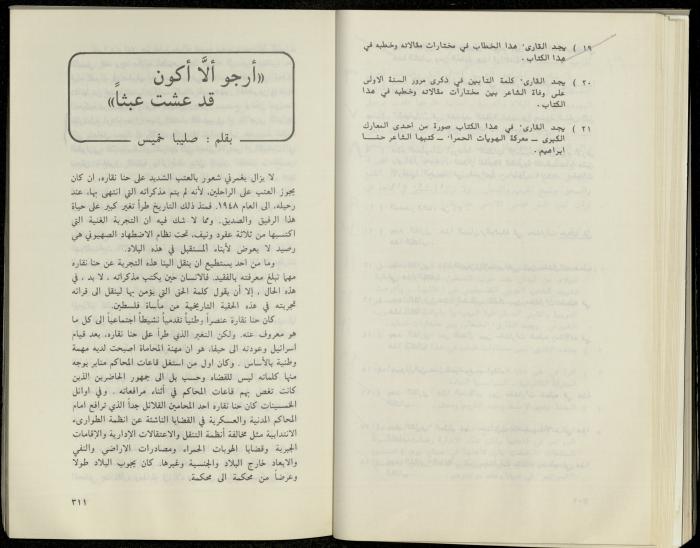 ١٩ ) يجد القارىء هذا الخطاب في مختارات مقالاته وخطبه في
هذا الكتاب .
٢٠ ) يجد القارىء كلمة التأبين في ذكرى مرور السنة الاولى
على وفاة الشاعر بين مختارات مقالاته وخطبه في هذا
الكتاب .
٢١ ) يجد القارىء في هذا الكتاب صورة من احدى المعارك
الكبرى ــ معركة الهويات الحمراء ــ كتبها الشاعر حنـــا
ابراهيم .
«أرجو ألاَّ أكون
قد عشت عبثاً»
بقلم : صليبا خميس
لا يزال يغمرني شعور بالعتب الشديد على حنا نقاره، ان كان
يجوز العتب على الراحلين. لأنه لم يتم مذكراته التي انتهى بها، عند
رحيله، الى العام ١٩٤٨. فمنذ ذلك التاريخ طرأ تغير كبير على حياة
هذا الرفيق والصديق. ومما لا شك فيه ان التجربة الغنية التي
اكتسبها من ثلاثة عقود ونيف، تحت نظام الاضطهاد الصهيوني هي
رصيد لا يعوض لأبناء المستقبل في هذه البلاد.
وما من احد يستطيع ان ينقل الينا هذه التجربة عن حنا نقاره
مهما تبلغ معرفته بالفقيد. فالانسان حين يكتب مذكراته ، لا بد ، في
هذه الحال ، إلا أن يقول كلمة الحق التي يؤمن بها لينقل الى قرائه
تجربته في هذه الحقبة التاريخية من مأساة فلسطين.
كان حنا نقارة عنصراً وطنياً تقدمياً نشيطاً اجتماعياً الى كل ما
هو معروف عنه. ولكن التغير الذي طرأ على حنا نقاره، بعد قيام
اسرائيل وعودته الى حيفا، هو ان مهنة المحاماة اصبحت لديه مهمة
وطنية بالأساس . وكان اول من استغل قاعات المحاكم منابر يوجه
منها كلماته ليس للقضاء وحسب بل الى جمهور الحاضرين الذين
كانت تغص بهم قاعات المحاكم في أثناء مرافعاته . وفي اوائل
الخمسينات كان حنا نقاره احد المحامين القلائل جداً الذي ترافع امام
المحاكم المدنية والعسكرية في القضايا الناشئة عن انظمة الطوارىء
الانتدابية مثل مخالفة أنظمة التنقل والاعتقالات الإدارية والإقامات
الجبرية وقضايا الهويات الحمراء ومصادرات الاراضي والنفي
والابعاد خارج البلاد والجنسية وغيرها. كان يجوب البلاد طولا
وعرضاً من محكمة الى محكمة.
٣١١